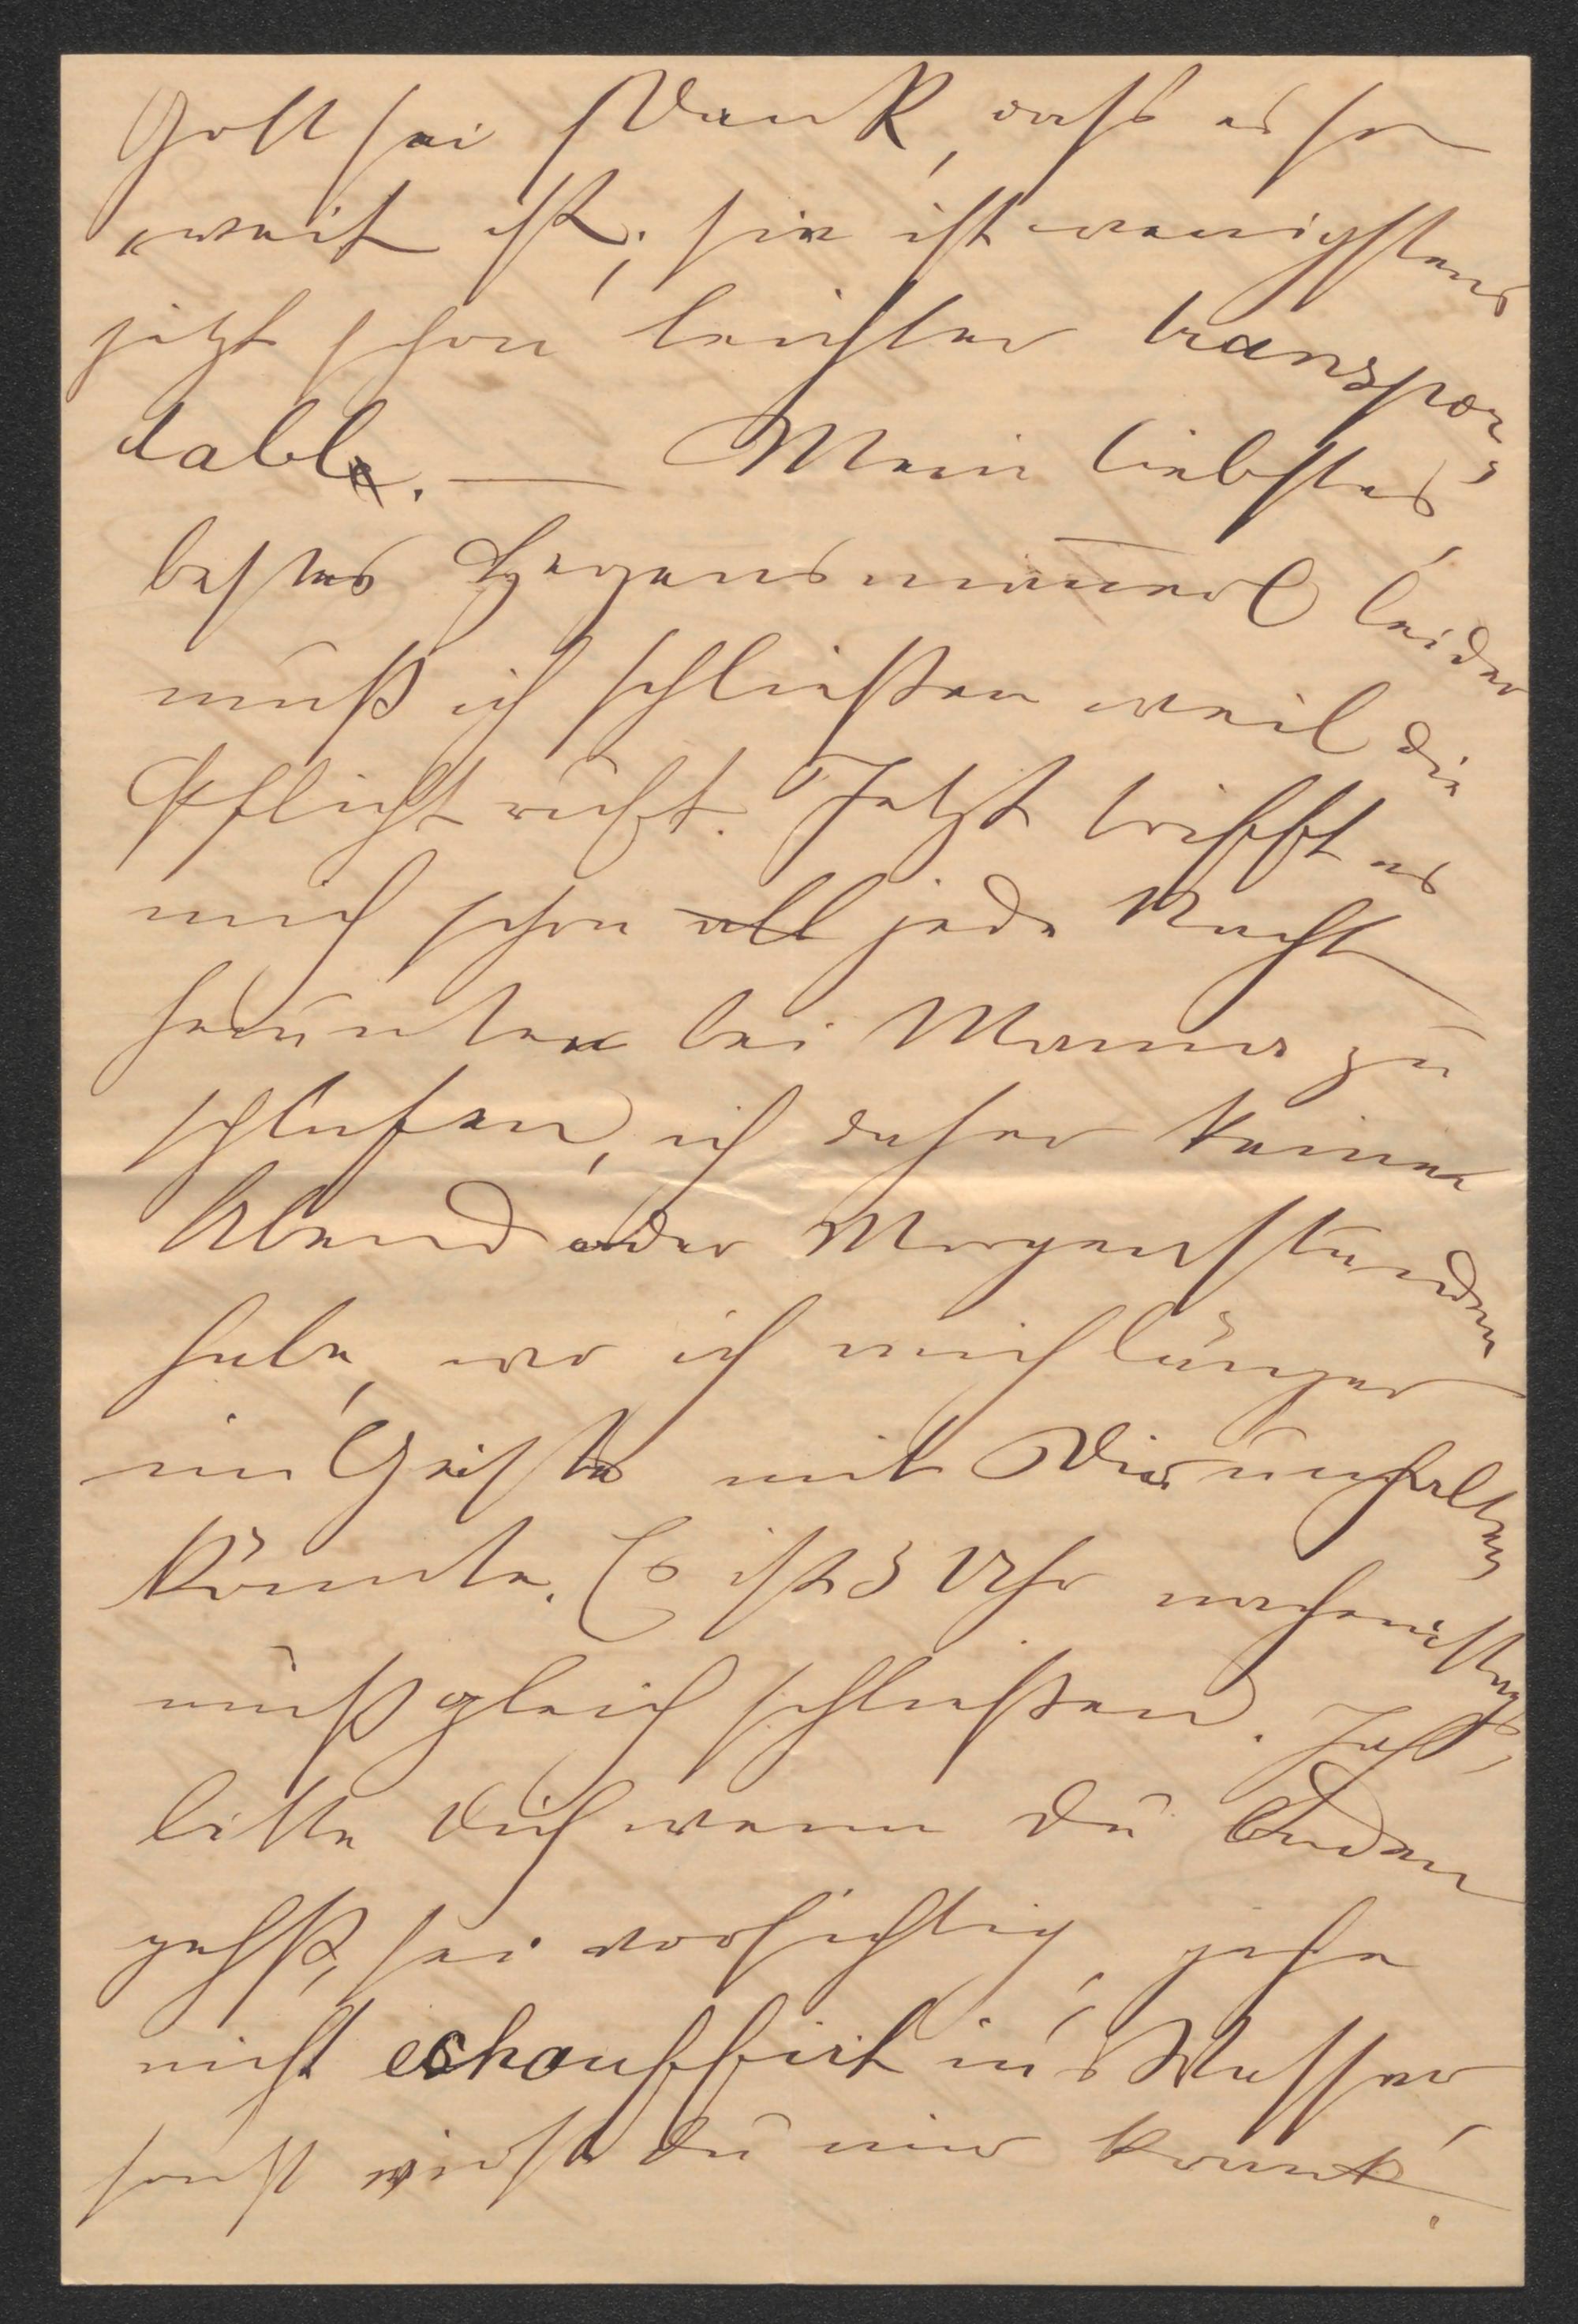 Gott sei Dank, dass es so
weit ist; sie ist wenigstens
jetzt schon leichter transpor-
tabl. — Mein liebstes,
bestes Herzensmannerl leider
muß ich schließen weil die
Pflicht ruft. Jetzt trifft es
mich schon all jede Nacht
herunten bei Mama zu
schlafen, ich daher keine
Abend oder Morgenstunden
habe, wo ich mich länger
im Geiste mit Dir unterhalten
könnte. Es ist 3 Uhr nachmittags,
muß gleich schließen. Ich
bitte Dich wenn du baden
gehst, sei vorsichtig, gehe
nicht echauffirt in's Wasser
sonst wirst du mir krank!